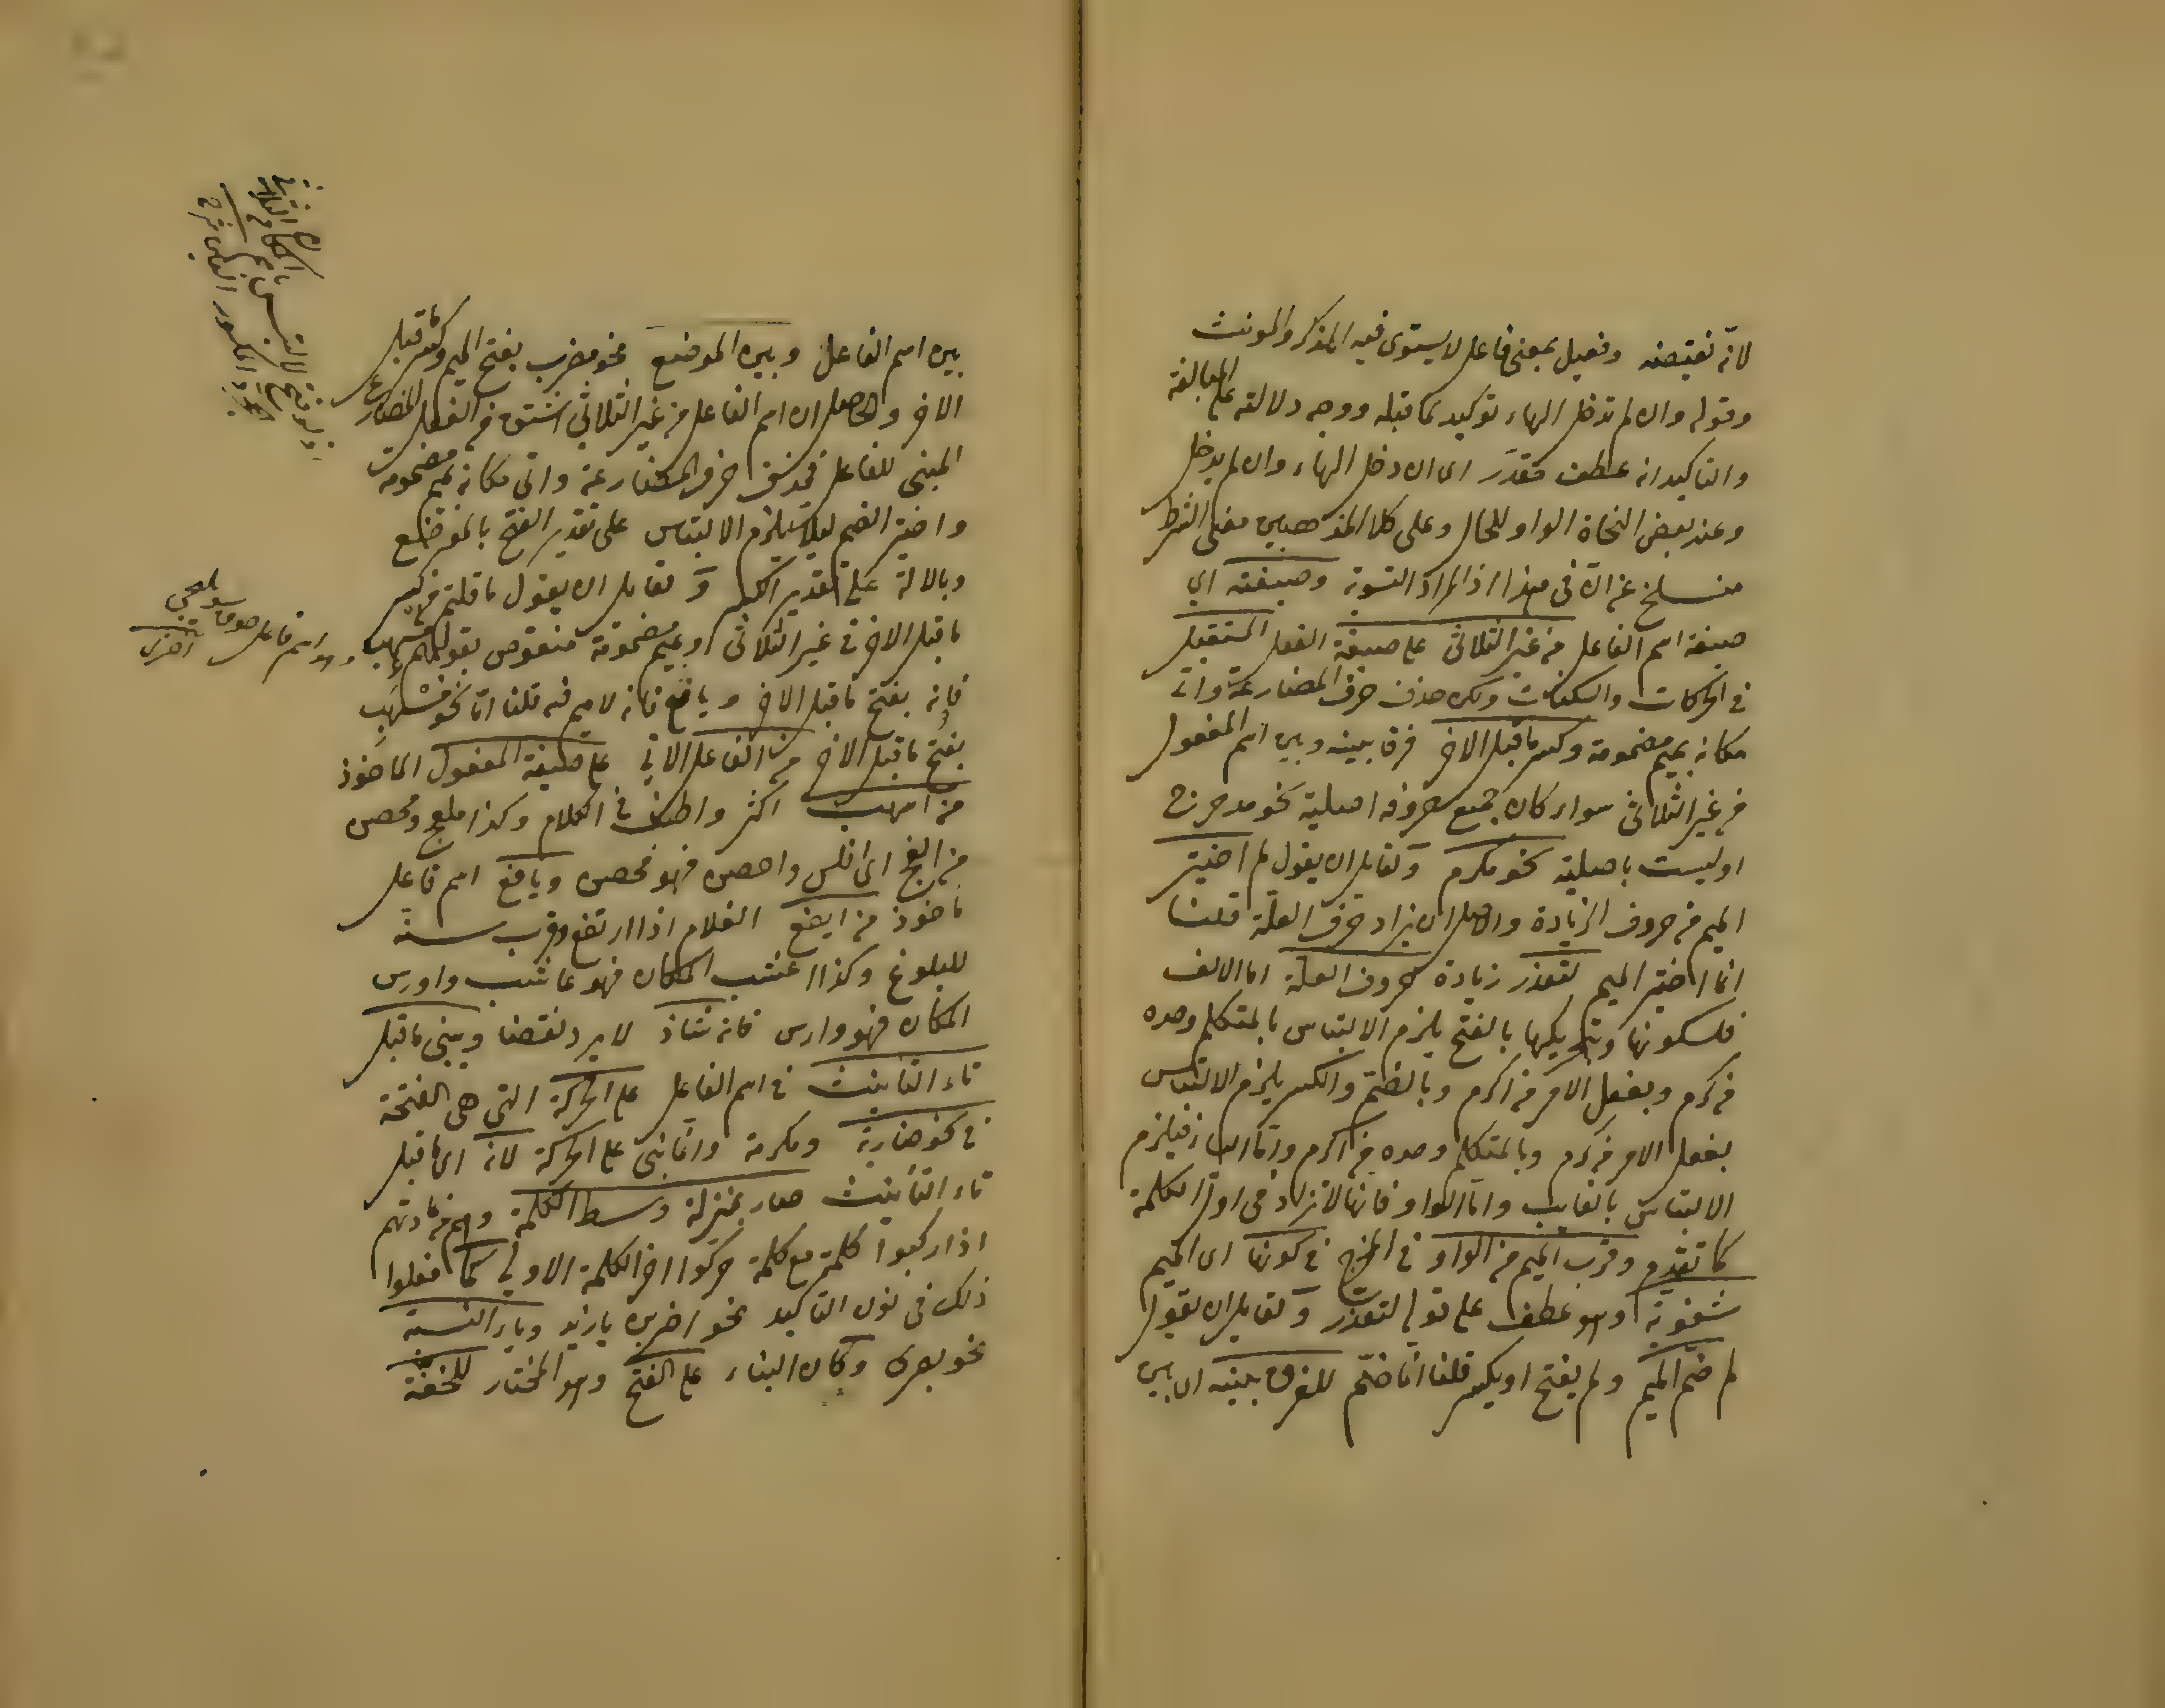 لانه نقيضه وفعيل بمعنى فاعل لا يستوى فيه المذكر والمونث
وقوله وان لم تدخل الهاء توكيد لما قبله ووجه دلالته على المبالغة
والتاكيد انه عطف مقدّر اى ان دخل الهاء وان لم يدخل
وعند بعض النحاة الواو للحال وعلى كلا المذهبين معنى الشرط
منسلخ عن ان فى هذا اذ المراد التسوية وصيغته اى
صيغة اسم الفاعل من غير الثلاثى على صيغة الفعل المستقبل
فى الحركات والسكنات ولكن حذف حرف المضارعة واتى
مكانه بميم مضمومة وكسر ما قبل الاخر فرقا بينه وبين اسم المفعول
من غير الثلاثى سواء كان جميع حروفه اصلية نحو مدحرج
او ليست باصلية نحو مكرم ولقايل ان يقول لم اختير
الميم من حروف الزيادة والاصل ان يزاد حرف العلّة قلنا
انما اختير الميم لتعذر زيادة حروف العلة اما الالف
فلسكونها وبتحريكها بالفتح يلزم الالتباس بالمتكلم وحده
من كرم وبفعل الامر من اكرم وبالضمّ والكسر يلزم الالتباس
بفعل الامر من كرم وبالمتكلم وحده من اكرم وامّا الياء فيلزم
الالتباس بالغايب وامّا الواو فانها لا تزاد فى اوّل الكلمة
كما تقدم وقرب الميم من الواو فى المخرج فى كونها اى الميم
شفوية وهو عطف على قوله لتعذر ولقايل ان يقول
لم ضمّ الميم ولم يفتح او يكسر قلنا انما ضمّ للفرق بينه اى بين
بين اسم الفاعل وبين الموضع نحو مضرب بفتح الميم وكسر ما قبل
الاخر والحاصل ان اسم الفاعل من غير الثلاثى اشتق من الفعل المضارع
المبنى للفاعل فحذف حرف المضارعة واتى مكانه بميم مضمومة
واختير الضم ليلا يلزم الالتباس على تقدير الفتح بالموضع
وبالالة على تقدير الكسر ولقايل ان يقول ما قلتم من كسر
ما قبل الاخر فى غير الثلاثى وبميم مضمومة منقوض بقولهم مسهب
فانه بفتح ما قبل الاخر ويافع فانه لا ميم فيه قلنا امّا نحو مسهب
بفتح ما قبل الاخر من الفاعل الاتى على صيغة المفعول الماخوذ
من اسهب اكثر واطنب فى الكلام وكذا ملفج ومحصن
من الفج اى افلس واحصن فهو محصن ويافع اسم فاعل
ماخوذ من ايفع الغلام اذا ارتفع وقرب سنه
للبلوغ وكذا اعشب المكان فهو عاشب واورس
المكان فهو وارس فانه شاذ لا يرد نقضا ويبنى ما قبل
تاء التانيث فى اسم الفاعل على الحركة التى هى الفتحة
فى نحو ضاربة ومكرمة وانما بنى على الحركة لانه اى ما قبل
تاء التانيث صار بمنزلة وسط الكلمة وهم من عادتهم
اذا ركبوا كلمة مع كلمة حركوا اخر الكلمة الاولى كما فعلوا
ذلك فى نون التاكيد نحو اضربن يا زيد وياء النسبة
نحو بصرى وكان البناء على الفتح وهو المختار للخفة